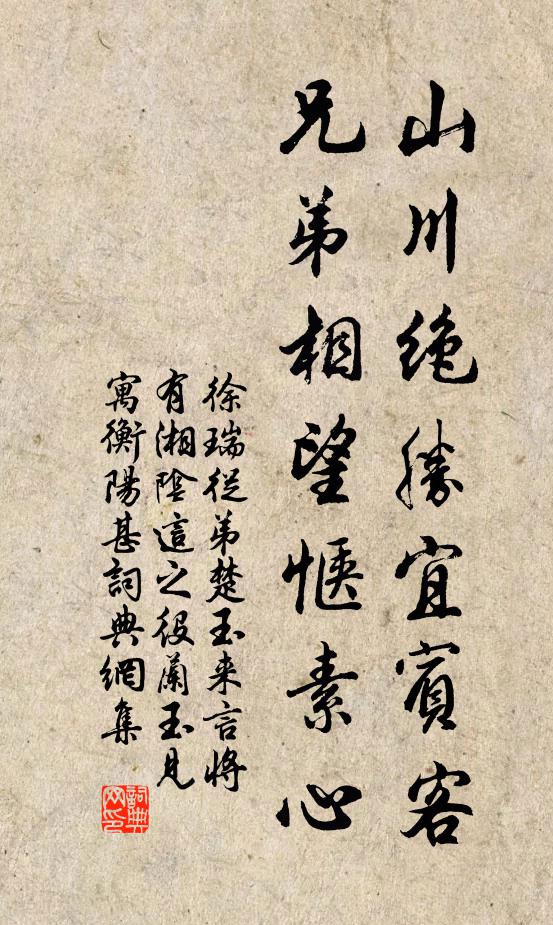 山川絶勝宜賓客
兄弟相望愜素心
徐瑞從弟楚玉來言將
有湘陰這之役蘭玉見
寓衡陽甚詞典網集
詞典網印